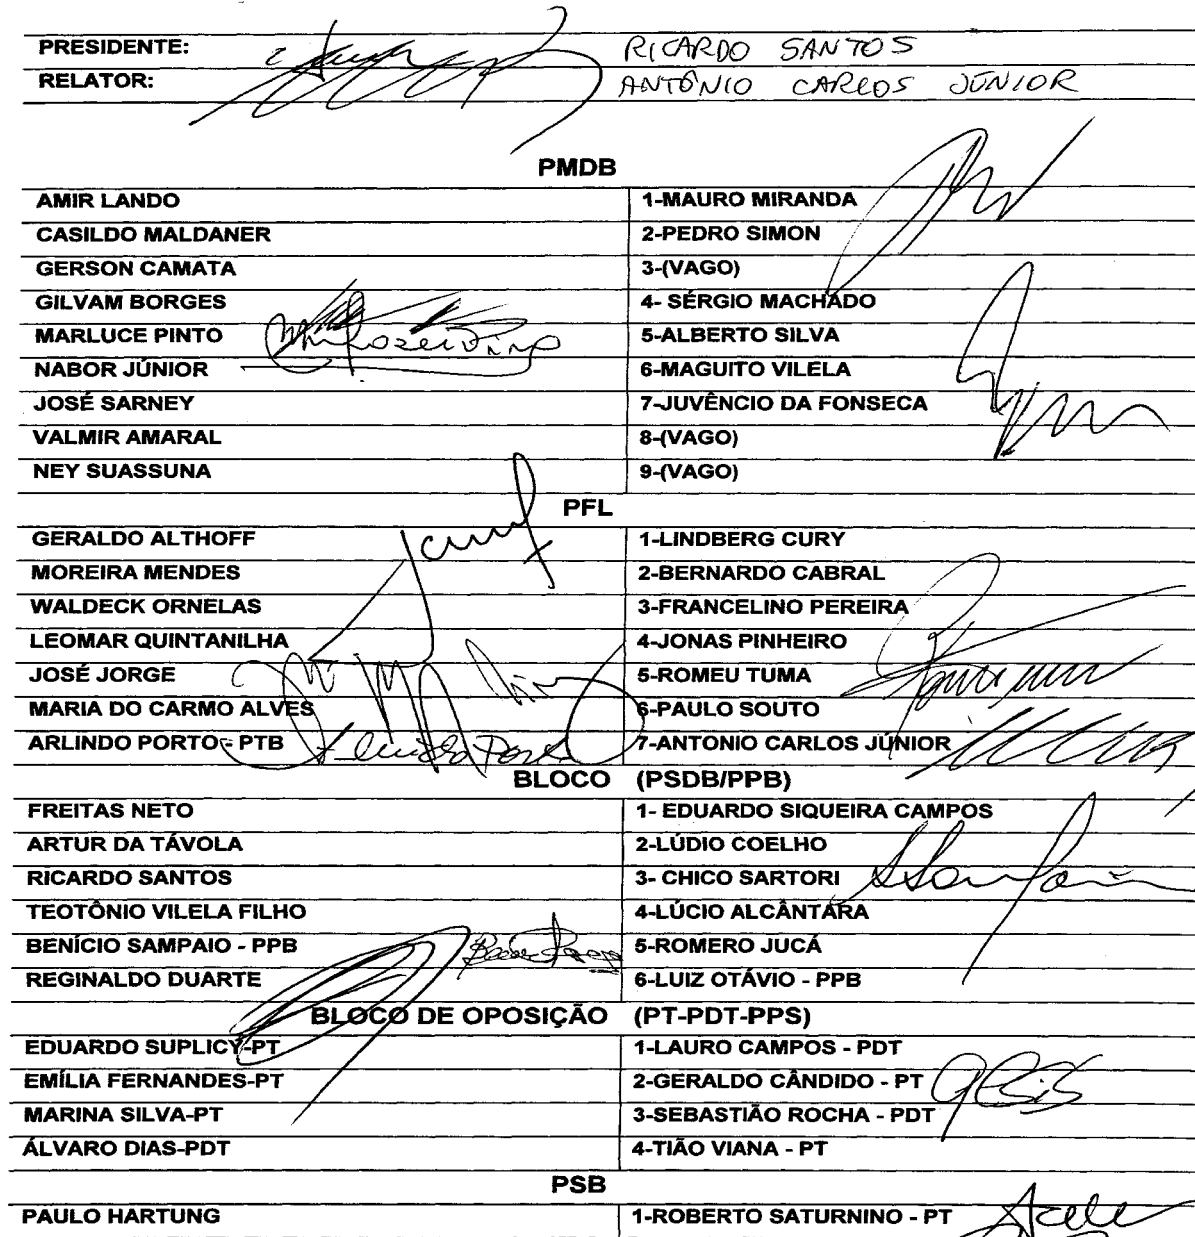 PRESIDENTE: RICARDO SANTOS
RELATOR: ANTÔNIO CARLOS JÚNIOR
PMDB
AMIR LANDO 1-MAURO MIRANDA
CASILDO MALDANER 2-PEDRO SIMON
GERSON CAMATA 3-(VAGO)
GILVAM BORGES 4- SÉRGIO MACHADO
MARLUCE PINTO 5-ALBERTO SILVA
NABOR JÚNIOR 6-MAGUITO VILELA
JOSÉ SARNEY 7-JUVÊNCIO DA FONSECA
VALMIR AMARAL 8-(VAGO)
NEY SUASSUNA 9-(VAGO)
PFL
GERALDO ALTHOFF 1-LINDBERG CURY
MOREIRA MENDES 2-BERNARDO CABRAL
WALDECK ORNELAS 3-FRANCELINO PEREIRA
LEOMAR QUINTANILHA 4-JONAS PINHEIRO
JOSÉ JORGE 5-ROMEU TUMA
MARIA DO CARMO ALVES 6-PAULO SOUTO
ARLINDO PORTO - PTB 7-ANTONIO CARLOS JÚNIOR
BLOCO (PSDB/PPB)
FREITAS NETO 1- EDUARDO SIQUEIRA CAMPOS
ARTUR DA TÁVOLA 2-LÚDIO COELHO
RICARDO SANTOS 3- CHICO SARTORI
TEOTÔNIO VILELA FILHO 4-LÚCIO ALCÂNTARA
BENÍCIO SAMPAIO - PPB 5-ROMERO JUCÁ
REGINALDO DUARTE 6-LUIZ OTÁVIO - PPB
BLOCO DE OPOSIÇÃO (PT-PDT-PPS)
EDUARDO SUPLICY-PT 1-LAURO CAMPOS - PDT
EMÍLIA FERNANDES-PT 2-GERALDO CÂNDIDO - PT
MARINA SILVA-PT 3-SEBASTIÃO ROCHA - PDT
ÁLVARO DIAS-PDT 4-TIÃO VIANA - PT
PSB
PAULO HARTUNG 1-ROBERTO SATURNINO - PT